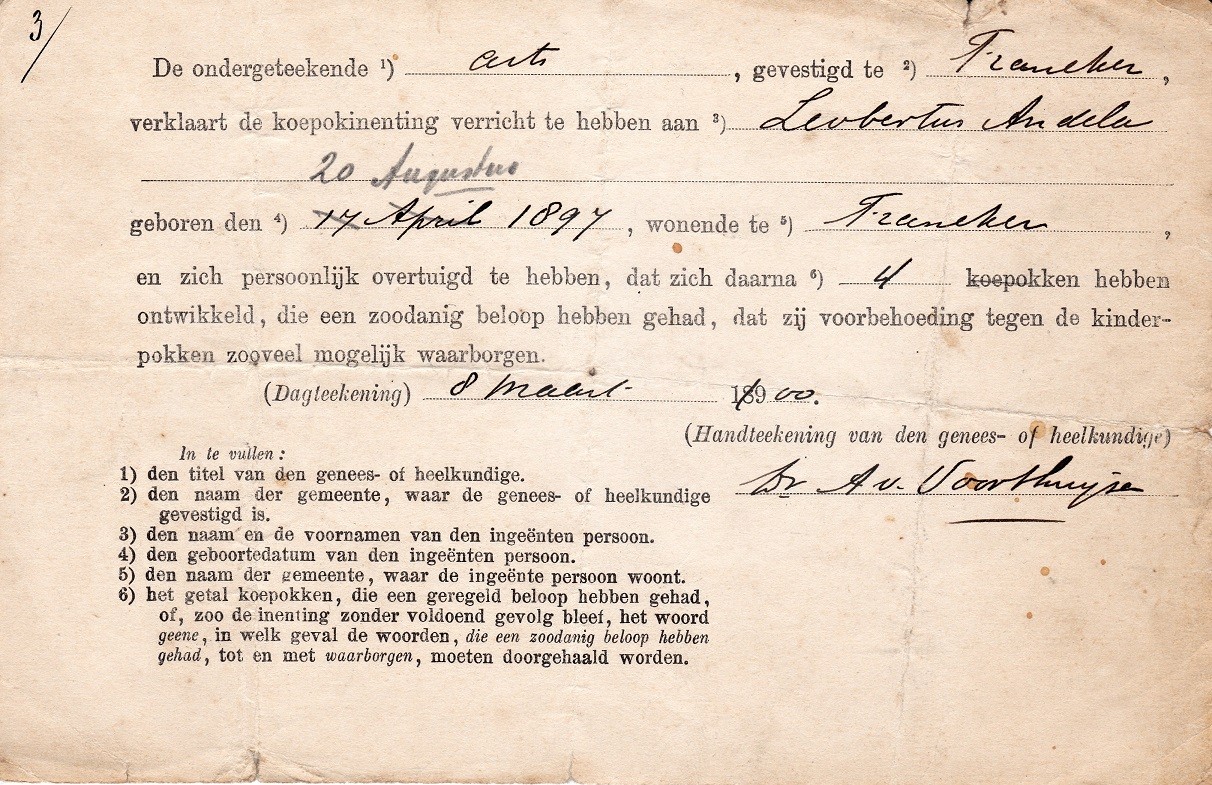 3/
De ondergeteekende 1) arts, gevestigd te 2) Franeker,
verklaart de koepokinenting verricht te hebben aan 3) Leobertus Andela
20 Augustus
geboren den 4) 17 April 1897, wonende te 5) Franeker,
en zich persoonlijk overtuigd te hebben, dat zich daarna 6) 4 koepokken hebben
ontwikkeld, die een zoodanig beloop hebben gehad, dat zij voorbehoeding tegen de kinder-
pokken zooveel mogelijk waarborgen.
(Dagteekening) 8 Maart 1900.
(Handteekening van den genees- of heelkundige)
Dr A v. Voorthuijsen
In te vullen:
1) den titel van den genees- of heelkundige.
2) den naam der gemeente, waar de genees- of heelkundige
gevestigd is.
3) den naam en de voornamen van den ingeënten persoon.
4) den geboortedatum van den ingeënten persoon.
5) den naam der gemeente, waar de ingeënte persoon woont.
6) het getal koepokken, die een geregeld beloop hebben gehad,
of, zoo de inenting zonder voldoend gevolg bleef, het woord
geene, in welk geval de woorden, die een zoodanig beloop hebben
gehad, tot en met waarborgen, moeten doorgehaald worden.